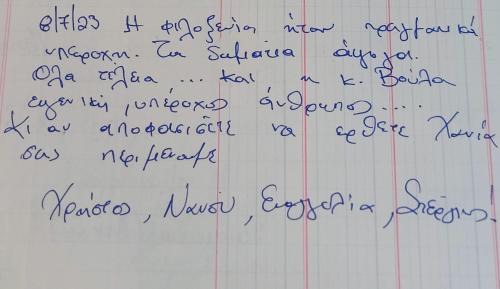 8/7/23 Η φιλοξενία ήταν πραγματικά
υπεροχη. Τα δωμάτια άψογα.
Ολα τέλεια ... και η κ. Βούλα
ευγενική, υπέροχος άνθρωπος ....
Κι αν αποφασισετε να ερθετε Χανιά
σας περιμεναμε
Χρήστος, Νανσύ, Ευαγγελία, Στέργιος!